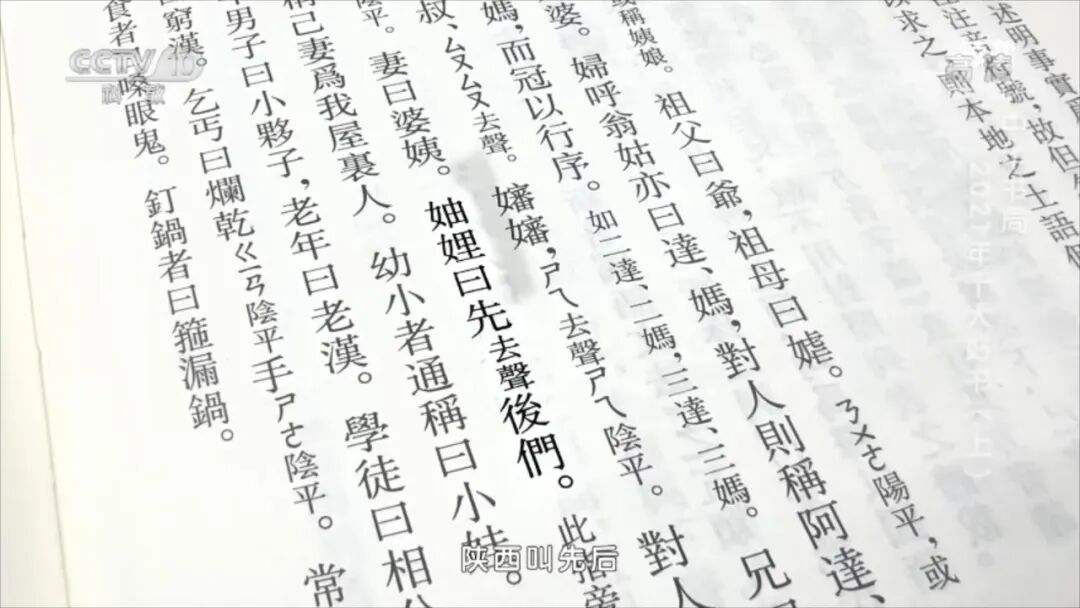 述明事實
注音符號,故但
以求之,則本地之土語
或稱姨娘。祖父曰爺,祖母曰媎。ㄋㄨㄜ陽平,或
婆。婦呼翁姑亦曰達、媽,對人則稱阿達、
媽,而冠以行序。如二達、二媽,三達、三媽。兄
叔、ㄙㄡㄙㄡ去聲。嬸嬸,ㄕㄟ去聲ㄕㄟ陰平。對人
陰平。妻曰婆姨。妯娌曰先去聲後們。此指
稱己妻爲我屋裏人。幼小者通稱曰小娃。
年男子曰小夥子,老年曰老漢。學徒曰相公
窮漢。乞丐曰爛乾ㄍㄢ陰平手ㄕㄜ陰平。常
食者曰嗓眼鬼。釘鍋者曰箍漏鍋。
CCTV 10
科教
陕西叫先后